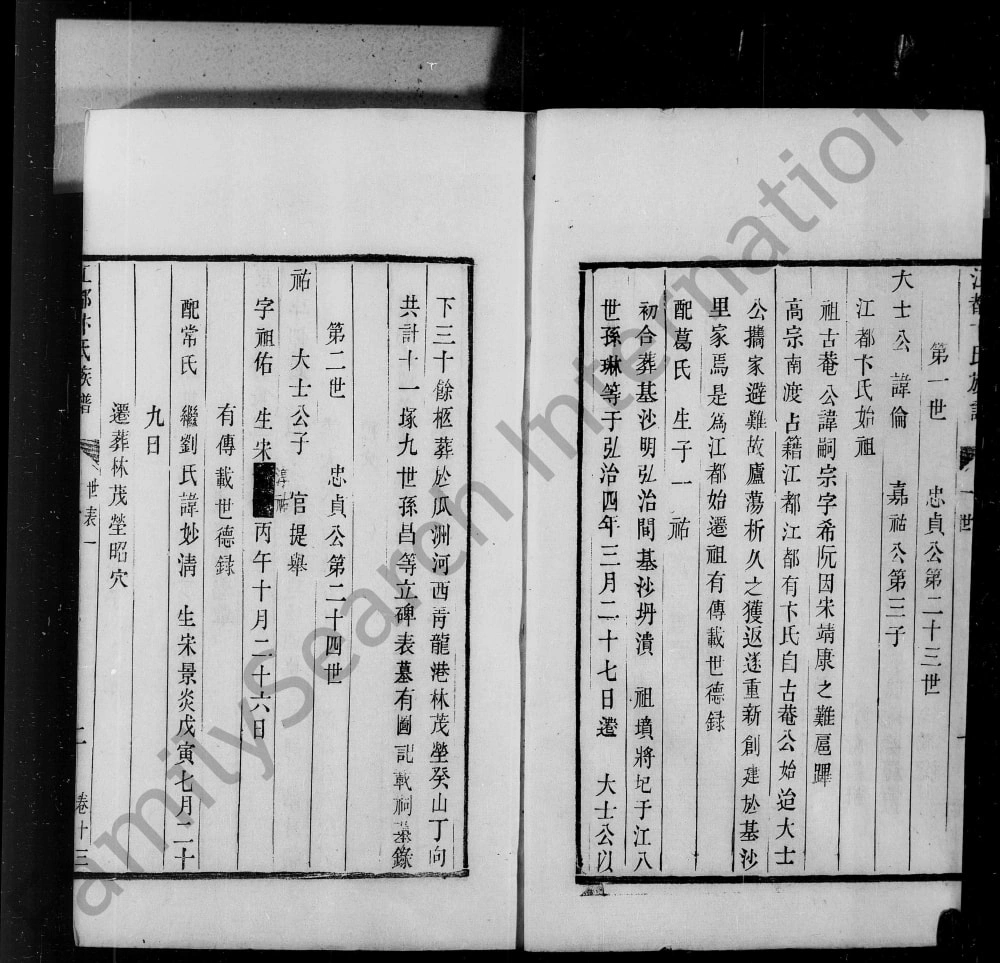 江都卞氏族譜
一世
一
第一世 忠貞公第二十三世
大士公 諱倫 嘉祐公第三子
江都卞氏始祖
祖古菴公諱嗣宗字希阮因宋靖康之難扈蹕
高宗南渡占籍江都江都有卞氏自古菴公始迨大士
公攜家避難故廬蕩析久之獲返遂重新創建於基沙
里家焉是為江都始遷祖有傳載世德録
配葛氏 生子一 祐
初合葬基沙明弘治間基沙坍潰 祖墳將圮于江八
世孫琳等于弘治四年三月二十七日遷 大士公以
下三十餘柩葬於瓜洲河西青龍港林茂塋癸山丁向
共計十一塚九世孫昌等立碑表墓有圖記載祠墓錄
第二世 忠貞公第二十四世
祐 大士公子 官提舉
字祖佑 生宋淳祐丙午十月二十六日
有傳載世德録
配常氏 繼劉氏諱妙清 生宋景炎戊寅七月二十
九日
遷葬林茂塋昭穴
江都卞氏族譜
世表一
二
卷十三
FamilySearch International